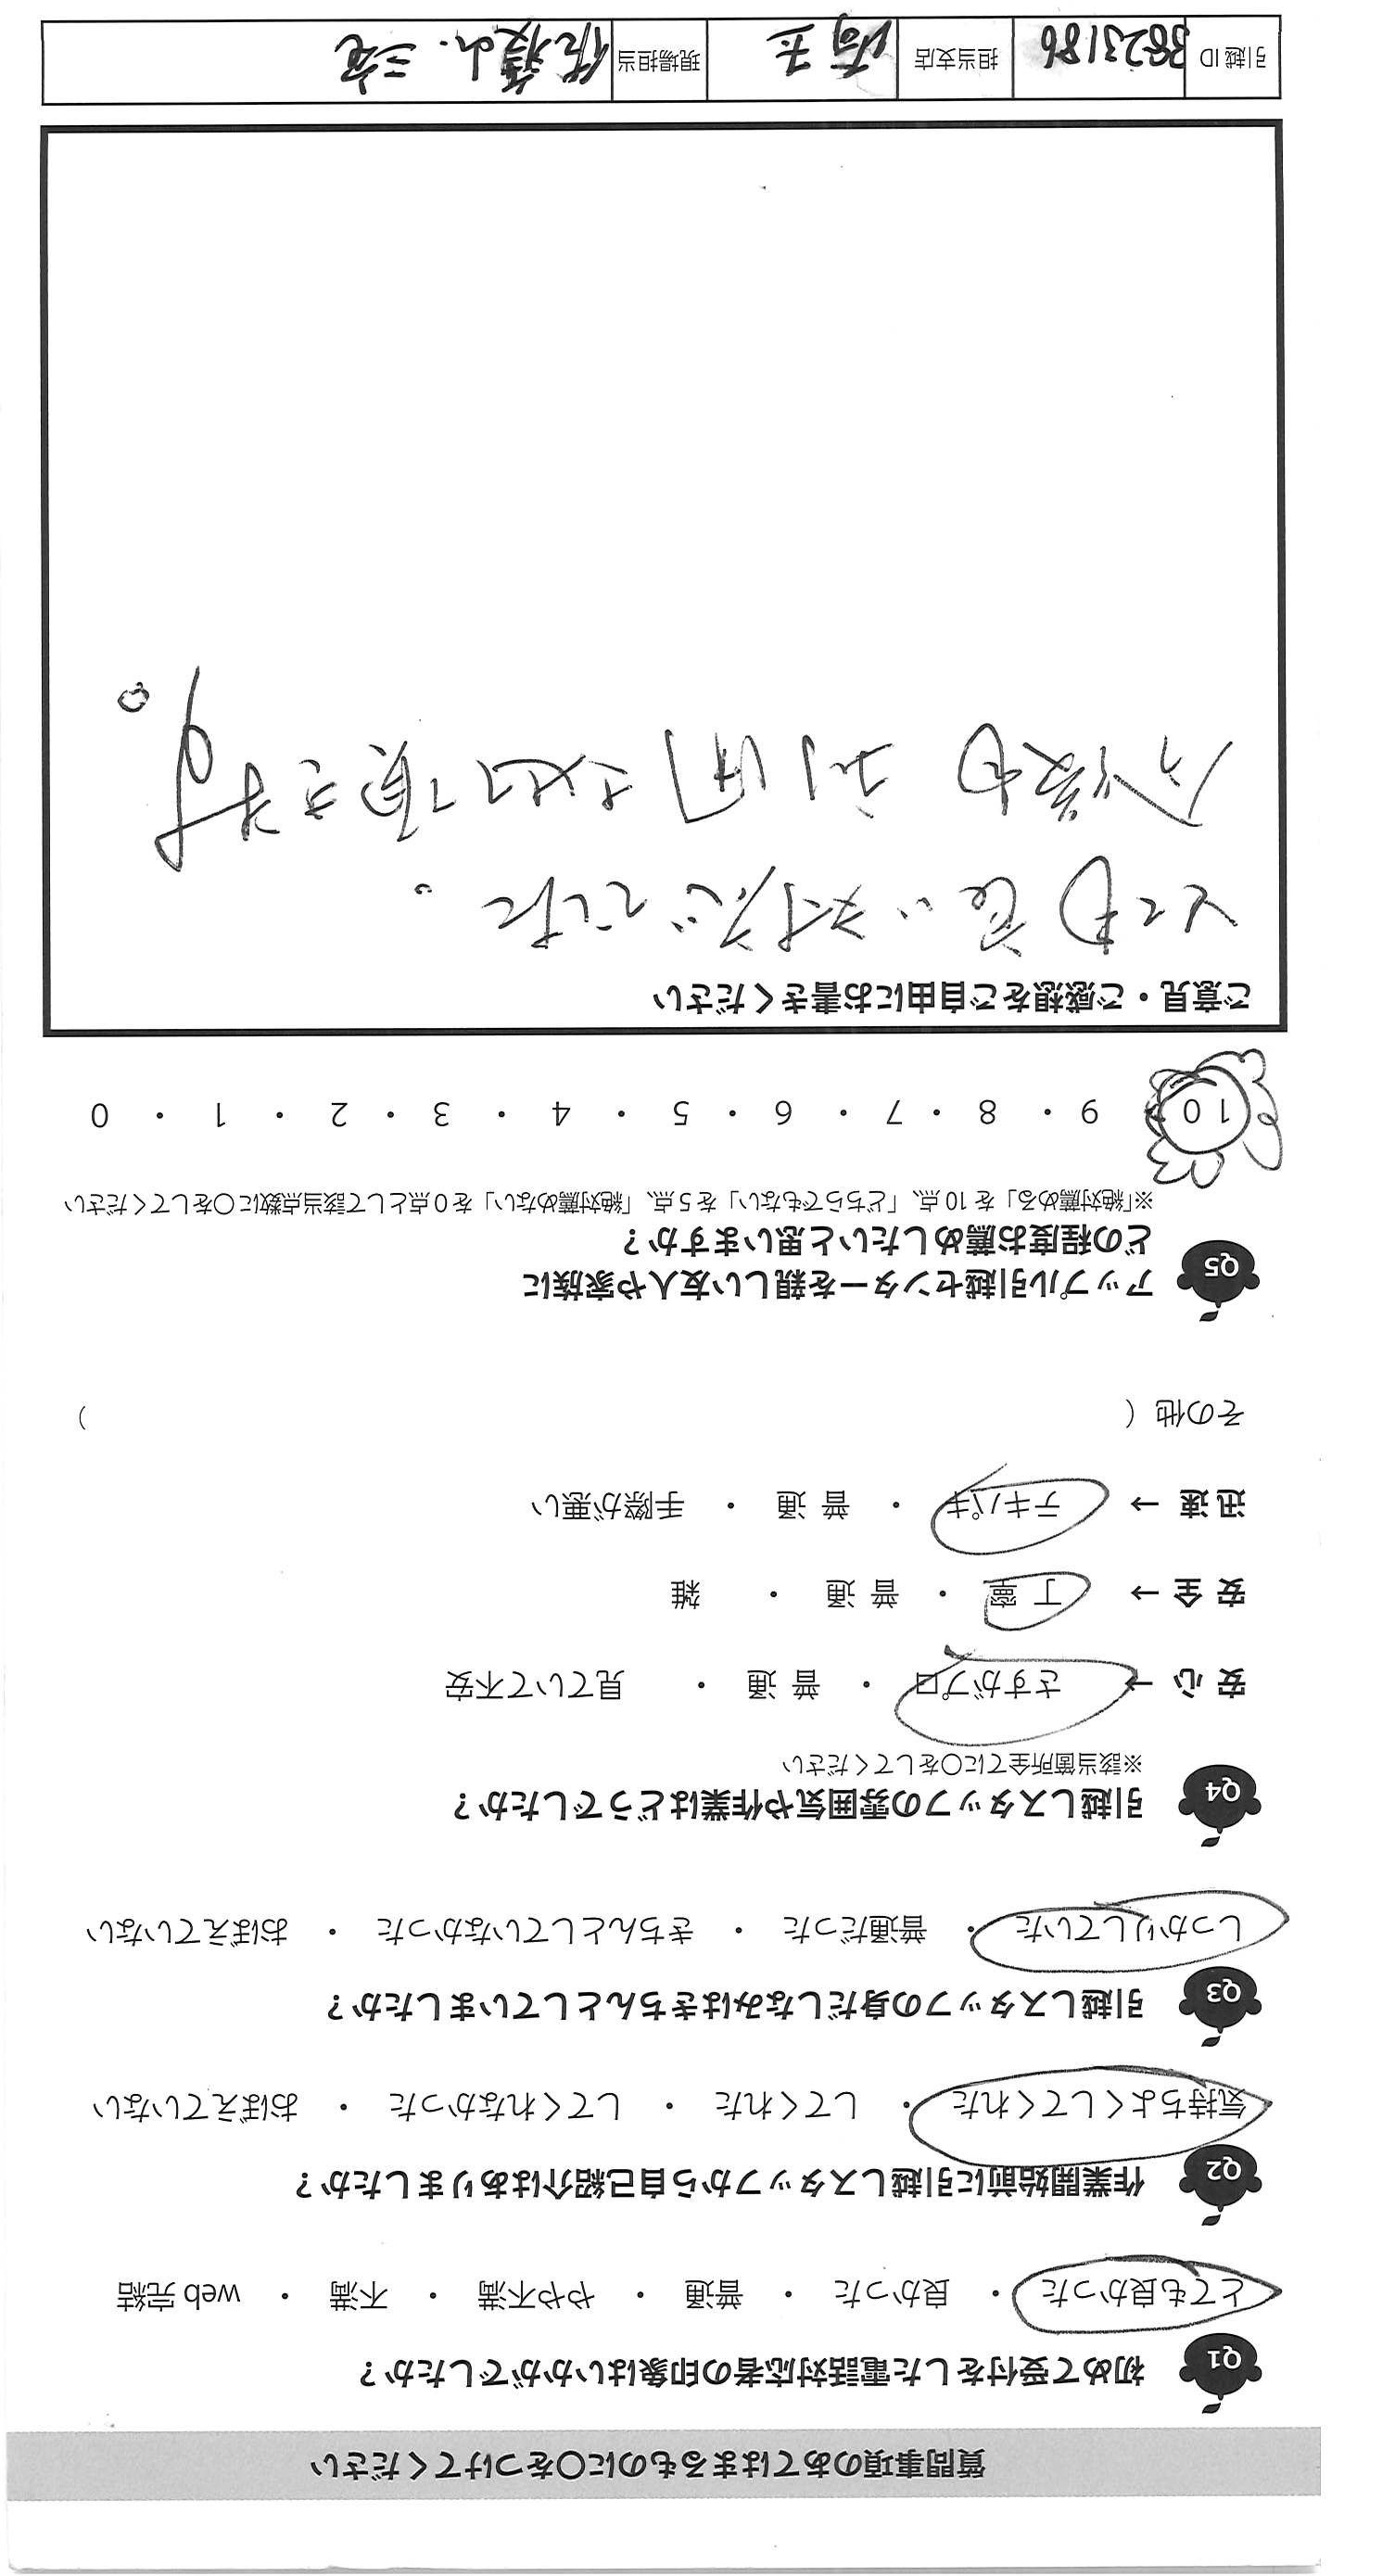 質問事項のあてはまるものに〇をつけてください
Q1 初めて受付をした電話対応者の印象はいかがでしたか？
とても良かった ・ 良かった ・ 普通 ・ やや不満 ・ 不満 ・ web 完結
Q2 作業開始前に引越しスタッフから自己紹介はありましたか？
気持ちよくしてくれた ・ してくれた ・ してくれなかった ・ おぼえていない
Q3 引越しスタッフの身だしなみはきちんとしていましたか？
しっかりしていた ・ 普通だった ・ きちんとしていなかった ・ おぼえていない
Q4 引越しスタッフの雰囲気や作業はどうでしたか？
※該当箇所全てに〇をしてください
安心 → さすがプロ ・ 普通 ・ 見ていて不安
安全 → 丁寧 ・ 普通 ・ 雑
迅速 → テキパキ ・ 普通 ・ 手際が悪い
その他（ ）
Q5 アップル引越センターを親しい友人や家族に
どの程度お薦めしたいと思いますか？
※「絶対薦める」を 10 点、「どちらでもない」を 5 点、「絶対薦めない」を 0 点として該当点数に〇をしてください
10 ・ 9 ・ 8 ・ 7 ・ 6 ・ 5 ・ 4 ・ 3 ・ 2 ・ 1 ・ 0
ご意見・ご感想をご自由にお書きください
とても良い対応でした。
今後も利用させて頂きます。
引越 ID 3823186 担当支店 埼玉 現場担当